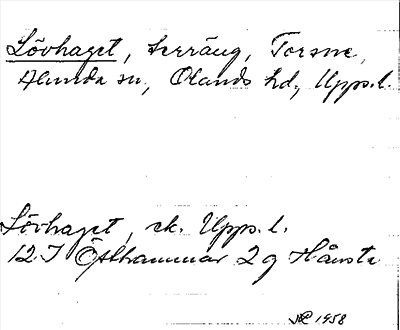 Lövhaget, terräng, Torsne,
Alunda sn, Olands hd, Upps.l.
Lövhaget, ek. Upps. l.
12 I Östhammar 2 g Hånsta
1958